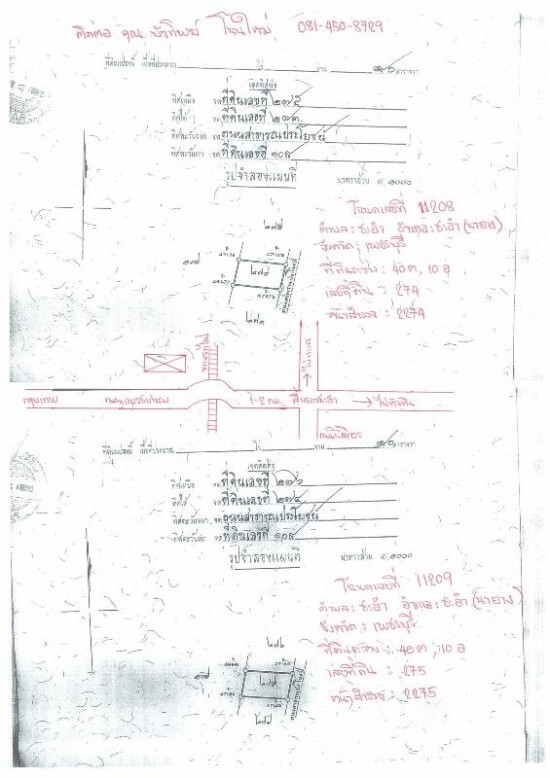 ติดต่อ คุณ บัวทิพย์ 081-450-8729
ที่ดินแปลงนี้ เนื้อที่ประมาณ ไร่ งาน ๕๐ ตารางวา
เขตติดต่อ
ทิศเหนือ จด ที่ดินเลขที่ ๒๗๕
ทิศใต้ จด ที่ดินเลขที่ ๒๗๓
ทิศตะวันออก จด ถนนสาธารณประโยชน์
ทิศตะวันตก จด ที่ดินเลขที่ ๑๐๘
รูปจำลองแผนที่ มาตราส่วน ๑:๑๐๐๐
โฉนดเลขที่ 11208
ตำบล: ชะอำ อำเภอ: ชะอำ (นายาง)
จังหวัด: เพชรบุรี
ที่ดินระวาง: 40 ต, 10 อ
เลขที่ดิน: 274
หน้าสำรวจ: 2274
๒๗๕
๒๗๔
๒๗๓
ทางรถไฟ
กรุงเทพ
ถนนเพชรเกษม
1-2 กม.
สี่แยกชะอำ
→ ไปหัวหิน
ที่ดินแปลงนี้ เนื้อที่ประมาณ ไร่ งาน ๕๐ ตารางวา
เขตติดต่อ
ทิศเหนือ จด ที่ดินเลขที่ ๒๗๖
ทิศใต้ จด ที่ดินเลขที่ ๒๗๔
ทิศตะวันออก จด ถนนสาธารณประโยชน์
ทิศตะวันตก จด ที่ดินเลขที่ ๑๐๘
รูปจำลองแผนที่ มาตราส่วน ๑:๑๐๐๐
โฉนดเลขที่ 11209
ตำบล: ชะอำ อำเภอ: ชะอำ (นายาง)
จังหวัด: เพชรบุรี
ที่ดินระวาง: 40 ต, 10 อ
เลขที่ดิน: 275
หน้าสำรวจ: 2275
๒๗๖